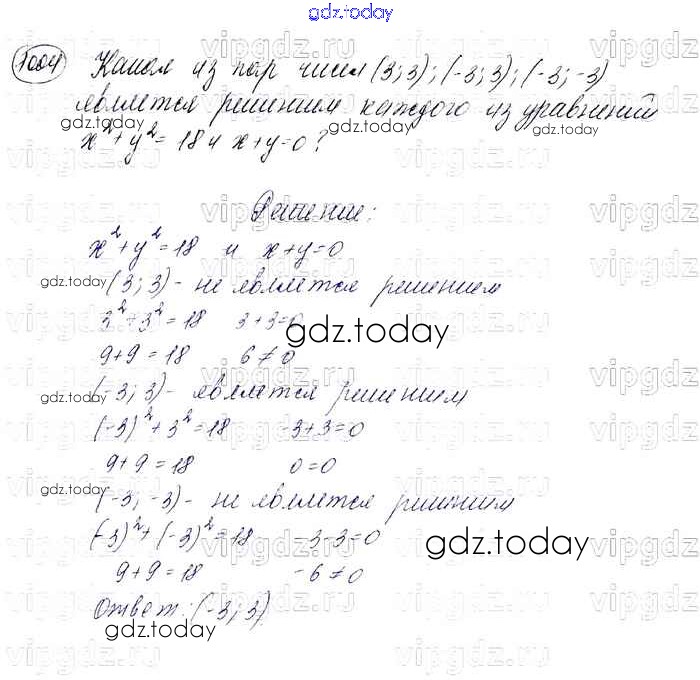 gdz.today
1004 Какая из пар чисел (3; 3); (-3; 3); (-3; -3)
является решением каждого из уравнений
gdz.today gdz.today gdz.today
x² + y² = 18 и x + y = 0?
Решение:
x² + y² = 18 и x + y = 0
gdz.today (3; 3) - не является решением
3² + 3² = 18 3 + 3 = 0
gdz.today
9 + 9 = 18 6 ≠ 0
(-3; 3) - является решением
gdz.today
(-3)² + 3² = 18 -3 + 3 = 0
9 + 9 = 18 0 = 0
gdz.today
(-3; -3) - не является решением
(-3)² + (-3)² = 18 -3 - 3 = 0
gdz.today
9 + 9 = 18 -6 ≠ 0
Ответ: (-3; 3)
gdz.today